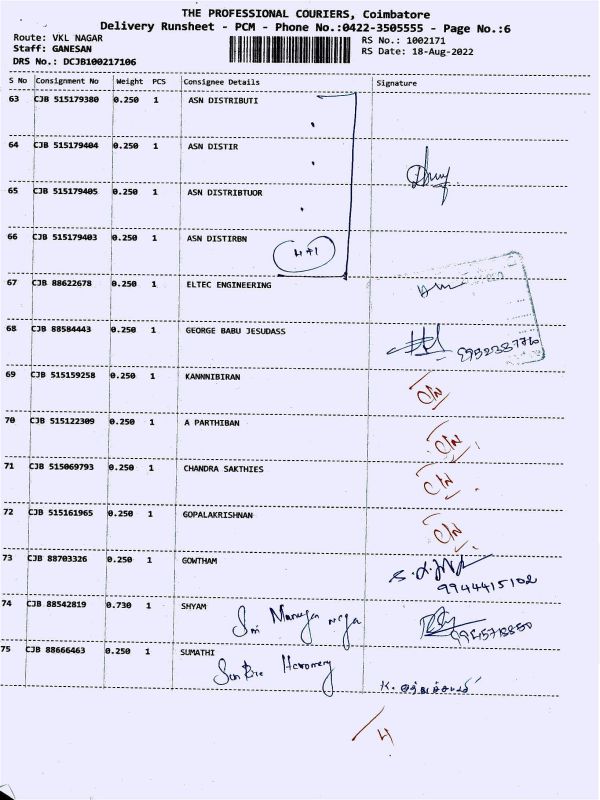 THE PROFESSIONAL COURIERS, Coimbatore
Delivery Runsheet - PCM - Phone No.:0422-3505555 - Page No.:6
Route: VKL NAGAR
RS No.: 1002171
Staff: GANESAN
RS Date: 18-Aug-2022
DRS No.: DCJB100217106
S No Consignment No Weight PCS Consignee Details Signature
63 CJB 515179380 0.250 1 ASN DISTRIBUTI
64 CJB 515179404 0.250 1 ASN DISTIR
65 CJB 515179405 0.250 1 ASN DISTRIBTUOR
66 CJB 515179403 0.250 1 ASN DISTIRBN
4+1
67 CJB 88622678 0.250 1 ELTEC ENGINEERING
68 CJB 88584443 0.250 1 GEORGE BABU JESUDASS
69 CJB 515159258 0.250 1 KANNNIBIRAN C/N
70 CJB 515122309 0.250 1 A PARTHIBAN C/N
71 CJB 515069793 0.250 1 CHANDRA SAKTHIES C/N
72 CJB 515161965 0.250 1 GOPALAKRISHNAN C/N
73 CJB 88703326 0.250 1 GOWTHAM
9944415102
74 CJB 88542819 0.730 1 SHYAM
Sri
75 CJB 88666463 0.250 1 SUMATHI
4